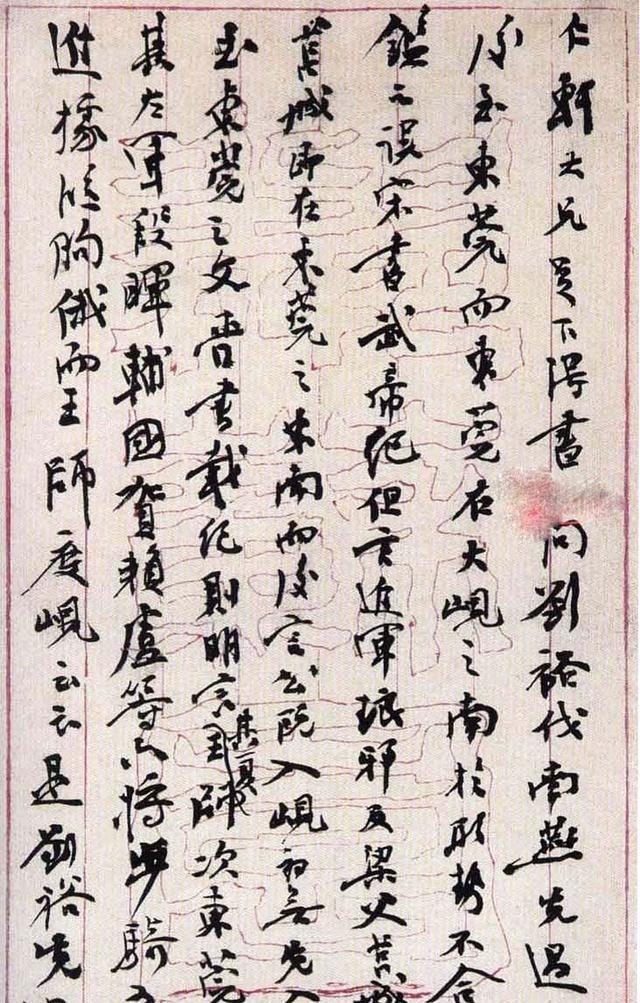 仁軒大兄足下得書問劉裕伐南燕先過
後至東莞而東莞右大峴之南於形勢不合
鑑之誤宋書武帝紀但言進軍琅邪及梁父莒城
莒城即在東莞之東南而後言公既入峴初無先入
至東莞之文晉書載記則明言其夏王師次東莞
其左軍段暉輔國賀賴盧等六將步騎五
進據臨朐俄而王師度峴云云是劉裕先過